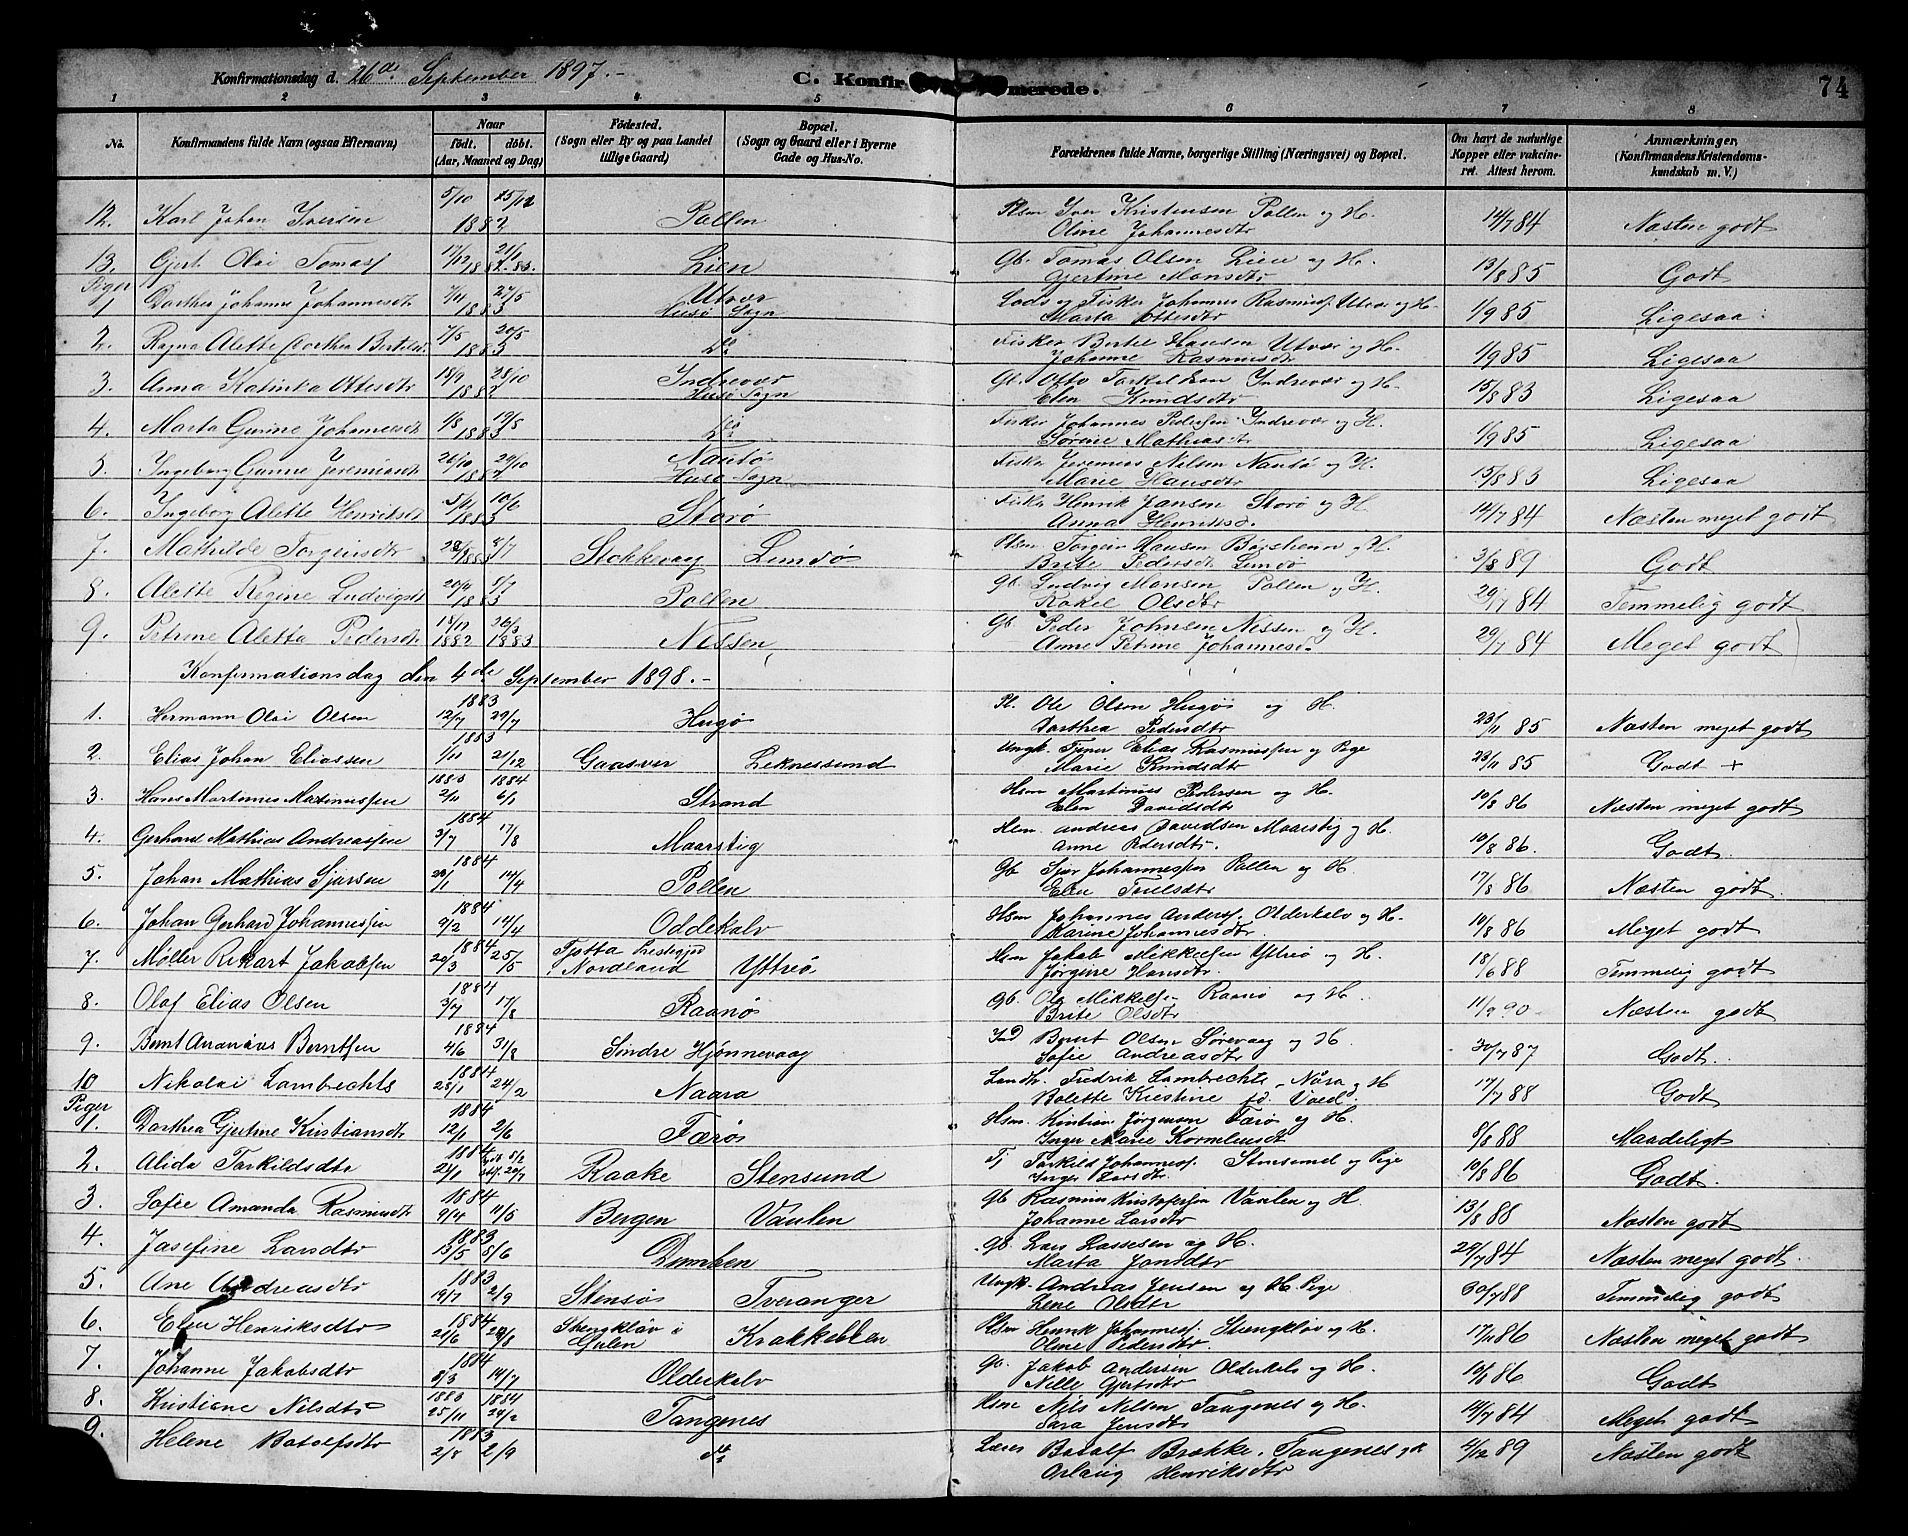 Konfirmationsdag d. 26de September 1897.-
C. Konfirmerede.
74
1 2 3 4 5 6 7 8
No.
Konfirmandens fulde Navn (ogsaa Efternavn)
Naar
født. døbt.
(Aar, Maaned og Dag)
Fødested.
(Sogn eller By og paa Landet tillige Gaard)
Bopæl.
(Sogn og Gaard eller i Byerne Gade og Hus-No.
Forældrenes fulde Navne, borgerlige Stilling (Næringsvei) og Bopæl.
Om havt de naturlige Kopper eller vakcineret. Attest herom.
Anmærkninger.
(Konfirmandens Kristendomskundskab m. V.)
12. Karl Johan Iversen 5/10 1882 Pollen Plsm Iver Kristensen Pollen og H. Oline Johannesdtr 14/7 84 Næsten godt
13. Gjert Olai Tomass 17/12 21/1 1882-83. Lien Gb. Tomas Olsen Lien og H. Gjertine Monsdtr 13/8 85 Godt
Piger
1 Dorthea Johanne Johannesdtr 27/5 1883 Utvær Husø Sogn Lods og Fisker Johannes Rasmuss. Utvær og H- Marta Ottesdtr 1/9 85 Ligesaa
2. Ragna Alette Dorthea Bertelsd. 7/5 20/5 1883 Do Fisker Bertel Hansen Utvær og H. Johanne Rasmusdtr 1/9 85 Ligesaa
3. Anna Katinka Ottesdtr 18/9 28/10 1882 Indrevær Husø Sogn Gb. Otto Torkildsen Indrevær og H- Elen Knudsdtr 15/8 83 Ligesaa
4. Marta Gurine Johannesdt 1/8 19/8 1883 Do Fisker Johannes Pedersen Indrevær og H. Sørine Mathiasdtr 1/9 85 Ligesaa
5. Ingeborg Gurine Jeremiasdt 26/10 29/10 1882 Nautø Husø Sogn Fisker Jeremias Nilsen Nautø og H. Marie Hansdtr 15/8 83 Ligesaa
6. Ingeborg Alette Henriksdt 10/6 1883 Storø Fisker Henrik Jansen Storø og H Anna Henriksd. 14/7 84 Næsten meget godt
7. Mathilde Torgeirsdtr 8/7 1883 Stokkevaag Lundø Plsm Torgeir Hansen og H Brite Pedersd. Lundø 3/8 89 Godt
8. Alette Regine Ludvigsdt 20/4 1/7 1883 Pollen Gb. Ludvig Monsen Pollen og H. Rakel Olsdtr 29/7 84 Temmelig godt
9. Petrine Aletta Pedersdt 13/12 26/3 1882 1883 Nissen Gb Peder Johnsen Nissen og H. Anne Petrine Johannesd. 29/7 84 Meget godt
Konfirmationsdag den 4de September 1898.-
1. Hermann Olai Olsen 1883 12/7 29/7 Hugø Pl. Ole Olsen Hugø og H. Dorthea Pedersdtr 23/11 85 Næsten meget godt
2. Elias Johan Eliassen 1883 1/11 21/12 Gaasvær Leknessund Ungk. Tjener Elias Rasmussen og Pige Marie Knudsdtr 23/11 85 Godt +
3. Hans Martinus Martinussen 1883 1884 2/11 6/1 Strand Hsm Martinus Pedersen og H. Elen Davidsdtr 10/8 86 Næsten meget godt
4. Gerhard Mathias Andreassen 1884 3/7 17/8 Maarstig Hsm. Andreas Davidsen Maarstig og H. Anne Pedersdtr. 10/8 86. Godt.
5. Johan Mathias Sjursen 1884 29/1 14/4 Pollen Gb Sjur Johannessen Pollen og H. Elen Troelsdtr 17/8 86 Næsten godt
6. Johan Gerhard Johannessen 1884 9/2 14/4 Oddekalv Hsm Johannes Anders. Olderkalv og H. Karine Johannesdtr. 10/8 86 Meget godt
7. Møller Rikart Jakobsen 1884 20/3 25/5 Tjøtta Prestegjd Nordland Yttrø Hsm Jakob Mikkelsen Yttrø og H. Jørgine Hansdtr. 18/6 88 Temmelig godt
8. Olaf Elias Olsen 1884 3/7 17/8 Raanø Gb. Ole Mikkelsen Raanø og H. Brite Olsdtr 11/9 90 Næsten godt
9. Bernt Ananias Berntsen 1884 4/6 31/8 Sindre Hjønnevaag Ind Bernt Olsen Sørevaag og H. Sofie Andreasdtr 30/7 87 Godt.
10 Nikolai Lambrechts 1884 25/1 24/2 Naara Landh. Fredrik Lambrechts, Nåra og H Bolette Kirstine fd. Voed. 17/7 88 Godt
Piger
1. Dorthea Gjertine Kristiansdtr 1884 12/1 2/6 Færø Hsm. Kristian Jørgensen Færø og H. Inger Marie Korneliusdt 8/8 88 Maadeligt
2. Alida Torkildsdtr 1884 23/1 Raake Stensund Tj Torkild Johanness. Stensund og Pige Inger Larsdtr 10/8 86 Godt.
3. Sofie Amanda Rasmusdtr 1884 9/4 11/5 Bergen Vaulen Gb Rasmus Kristofersen Vaulen og H. Johanne Larsdtr 13/8 88 Næsten godt
4. Josefine Larsdtr 1883 13/5 5/6 Dumben Gb. Lars Lassesen og H. Marta Jonsdtr 29/7 84 Næsten meget godt
5. Ane Andreasdtr 1883 19/7 2/9 Stensø Tveranger Ungk. Andreas Jensen og H. Pige Lene Olsdtr 30/7 88 Temmelig godt
6. Elen Henriksdtr 1884 21/6 Skengkløv i Gulen Krakkebben Plsm Henrik Johanness. og H. Oline Pedersdtr 17/11 86 Næsten meget godt
7. Johanne Jakobsdtr 1884 3/3 14/7 Olderkalv Gb. Jakob Andersen Olderkalv og H. Nille Gjertsdtr 10/8 86 Godt
8. Kristiane Nilsdtr 1883 1884 25/11 24/2 Tangenes Hsm Nils Nilsen Tangenes og H. Sara Jensdtr 14/7 84 Meget godt
9. Helene Botolfsdtr 1883 2/8 2/9 do Lærer Botolf Brække, Tangenes og H Orlaug Henriksdtr 4/12 89 Næsten godt